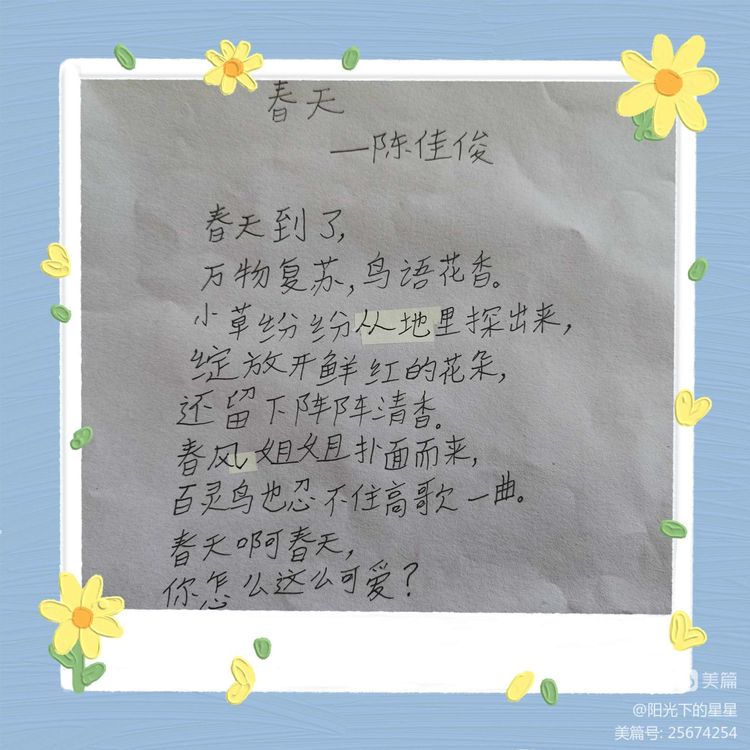 春天
—陈佳俊
春天到了,
万物复苏,鸟语花香。
小草纷纷从地里探出来,
绽放开鲜红的花朵,
还留下阵阵清香。
春风姐姐扑面而来,
百灵鸟也忍不住高歌一曲。
春天啊春天,
你怎么这么可爱?
美篇
@阳光下的星星
美篇号: 25674254